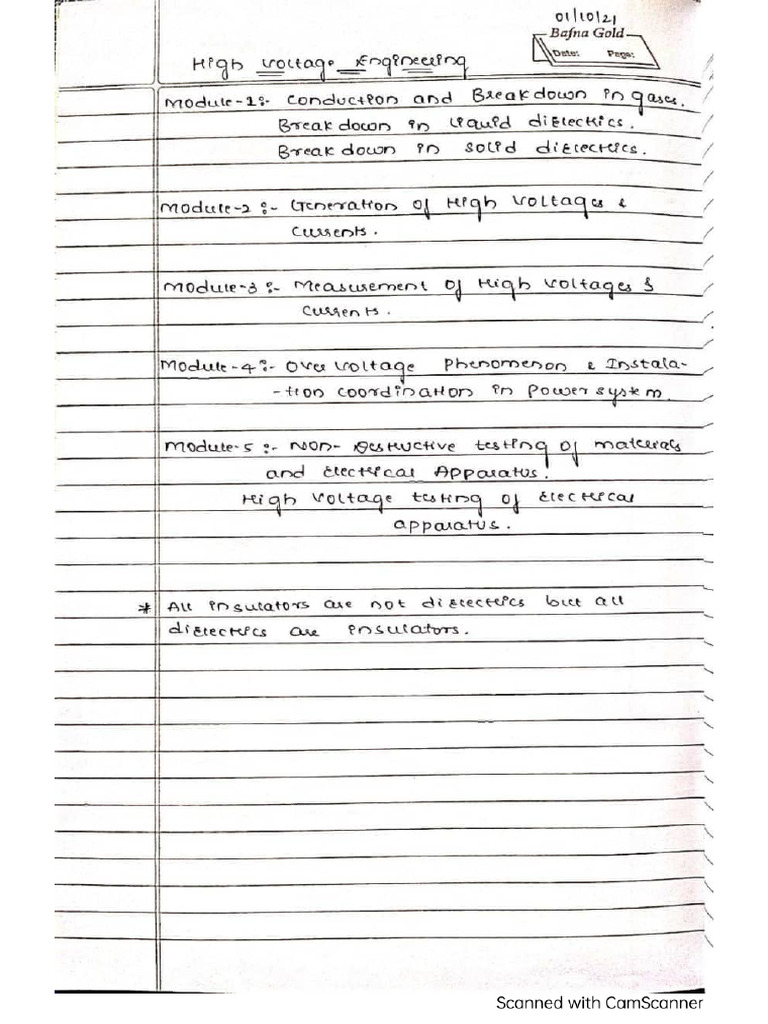 01/10/21
Bafna Gold
Date: Page:
High Voltage Engineering
Module-1:- Conduction and Breakdown in gases.
Breakdown in liquid dielectrics.
Breakdown in solid dielectrics.
Module-2:- Generation of High Voltages &
Currents.
Module-3:- Measurement of High Voltages &
Currents.
Module-4:- Over voltage Phenomenon & Instala-
-tion coordination in Power system.
Module-5:- Non-Destructive testing of materials
and Electrical Apparatus.
High Voltage testing of Electrical
apparatus.
* All insulators are not dielectrics but all
dielectrics are insulators.
Scanned with CamScanner